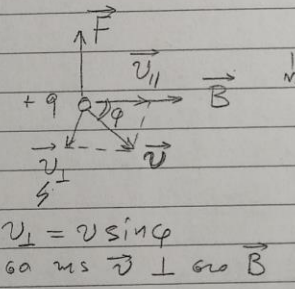 F⃗
v⃗∥
+q φ B⃗
v⃗⊥ v⃗
v⊥ = v sinφ
v⃗ ⊥ B⃗